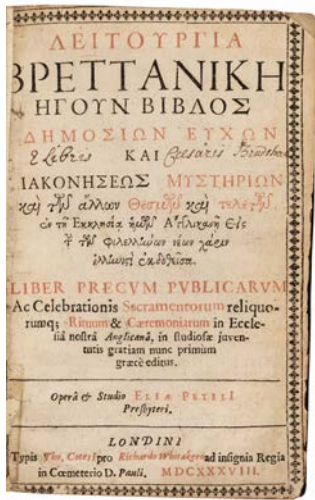 ΛΕΙΤΟΥΡΓΙΑ
ΒΡΕΤΤΑΝΙΚΗ
ΗΓΟΥΝ ΒΙΒΛΟΣ
ΔΗΜΟΣΙΩΝ ΕΥΧΩΝ
ΚΑΙ Cæsaris
ΙΑΚΟΝΗΣΕΩΣ ΜΥΣΤΗΡΙΩΝ
καὶ τῆς ἄλλων Θεσμῶν καὶ τελετῶν,
ἐν τῇ Εκκλησίᾳ ἡμῶν Εἰς
τῶν φιλελλήνων νέων χάριν
LIBER PRECVM PVBLICARVM
Ac Celebrationis Sacramentorum reliquo-
rumq; Rituum & Cæremoniarum in Eccle-
siâ nostrâ Anglicanâ, in studiosæ juven-
tutis gratiam nunc primùm
græcè editus.
Operâ & Studio ELIÆ PETELI
Presbyteri.
LONDINI
Typis Tho, Cotesi pro Richardo Whitakero ad insignia Regia
in Cœmeterio D. Pauli. MDCXXXVIII.